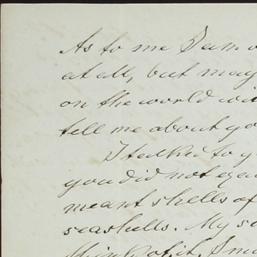 As to me I am
at all, but may
on the world wi
tell me about yo
I talked to y
you did not
meant shells of
seashells. My s
think of it. I m